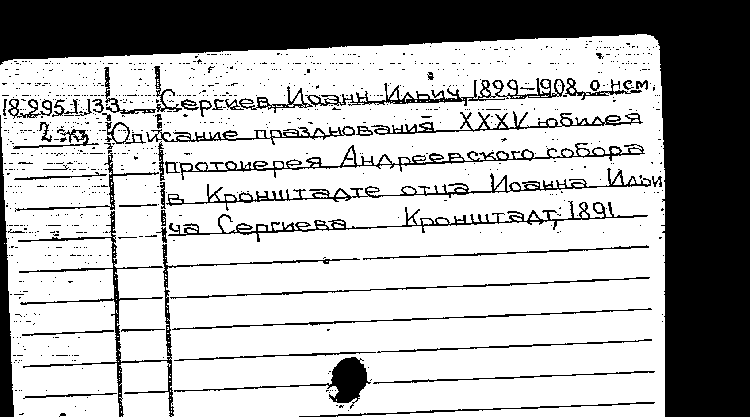 18.995.1.133 Сергиев, Иоанн Ильич, 1899-1908, о нем.
2 экз Описание празднования XXXV юбилея
протоиерея Андреевского собора
в Кронштадте отца Иоанна Ильи
ча Сергиева. Кронштадт, 1891